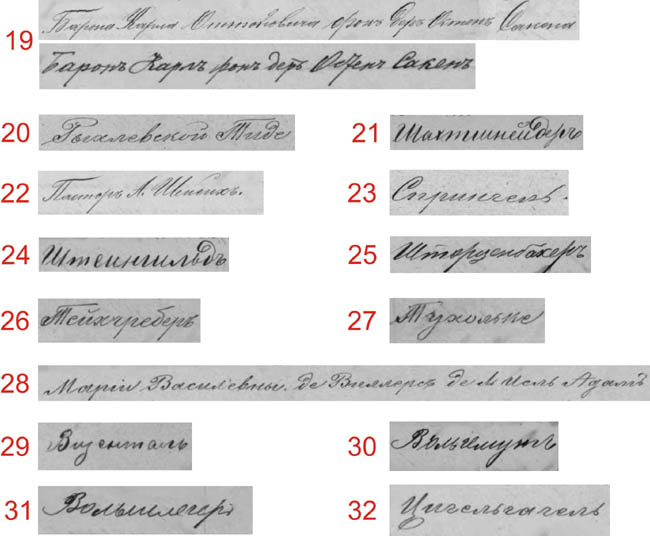 19 Барона Карла Оттоновича фонъ деръ Остенъ Сакена
Баронъ Карлъ фонъ деръ Остенъ Сакенъ
20 Рыхлевской Тиде
21 Шахтшнейдеръ
22 Пасторъ А.
23 Спрингель.
24 Штеингильдъ
25 Шторценбахеръ
26 Тейхгреберъ
27 Тухольке
28 Маріи Василевны де Виллерсъ де Адамъ
29 Визенталь
30 Вольгемутъ
31
32 Цигельгагель